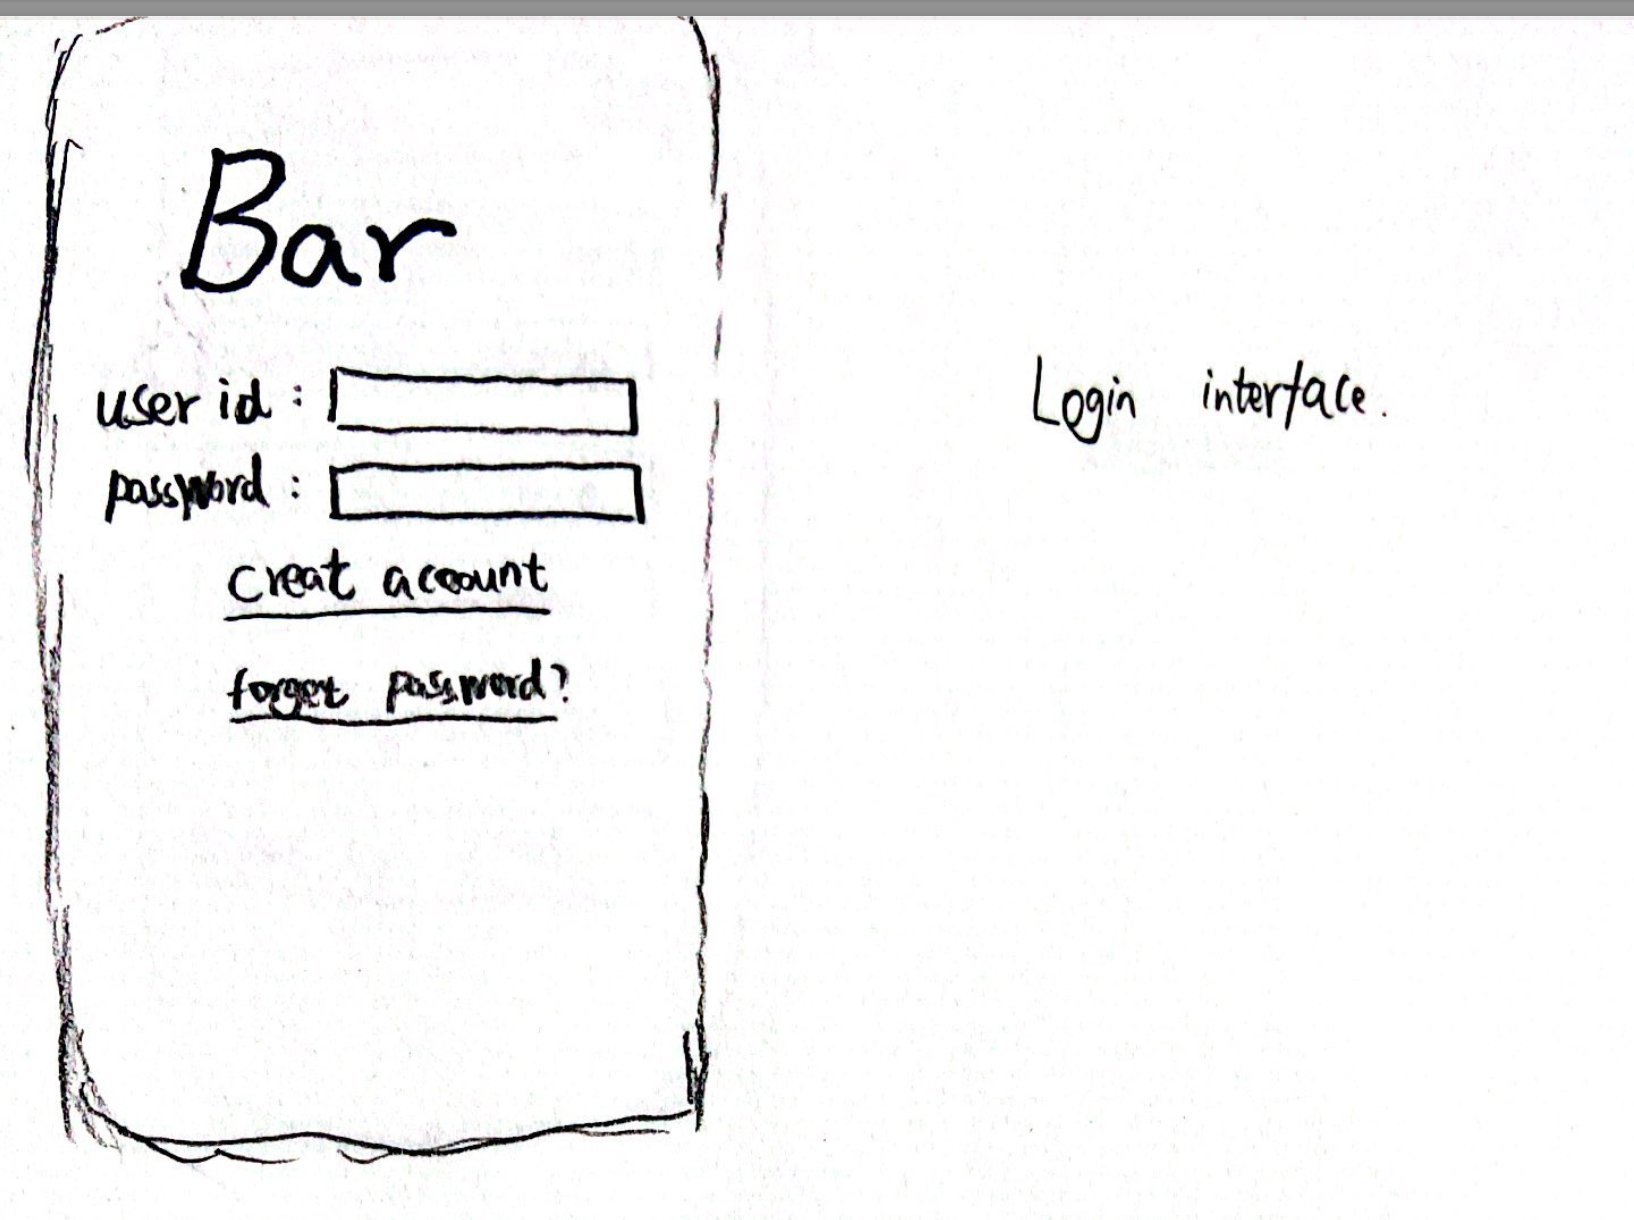 Bar
user id :
password :
creat account
forget password?
Login interface.